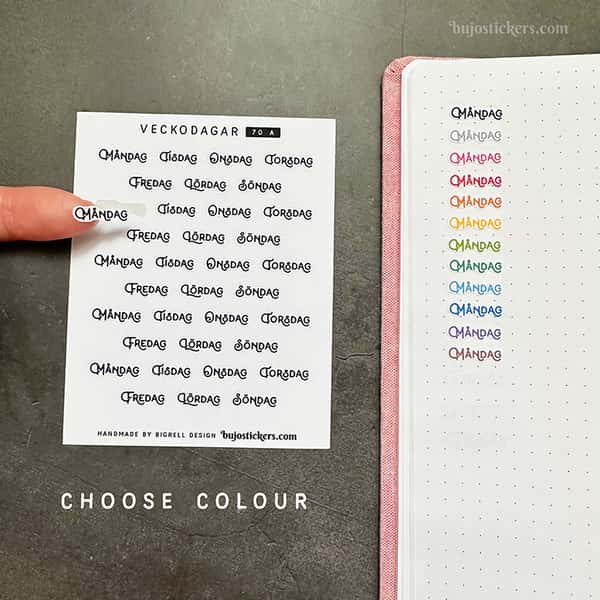 bujostickers.com
VECKODAGAR 70 A
MÅNDAG TISDAG ONSDAG TORSDAG
FREDAG LÖRDAG SÖNDAG
MÅNDAG TISDAG ONSDAG TORSDAG
FREDAG LÖRDAG SÖNDAG
MÅNDAG TISDAG ONSDAG TORSDAG
FREDAG LÖRDAG SÖNDAG
MÅNDAG TISDAG ONSDAG TORSDAG
FREDAG LÖRDAG SÖNDAG
MÅNDAG TISDAG ONSDAG TORSDAG
FREDAG LÖRDAG SÖNDAG
HANDMADE BY BIGRELL DESIGN bujostickers.com
CHOOSE COLOUR
MÅNDAG
MÅNDAG
MÅNDAG
MÅNDAG
MÅNDAG
MÅNDAG
MÅNDAG
MÅNDAG
MÅNDAG
MÅNDAG
MÅNDAG
MÅNDAG